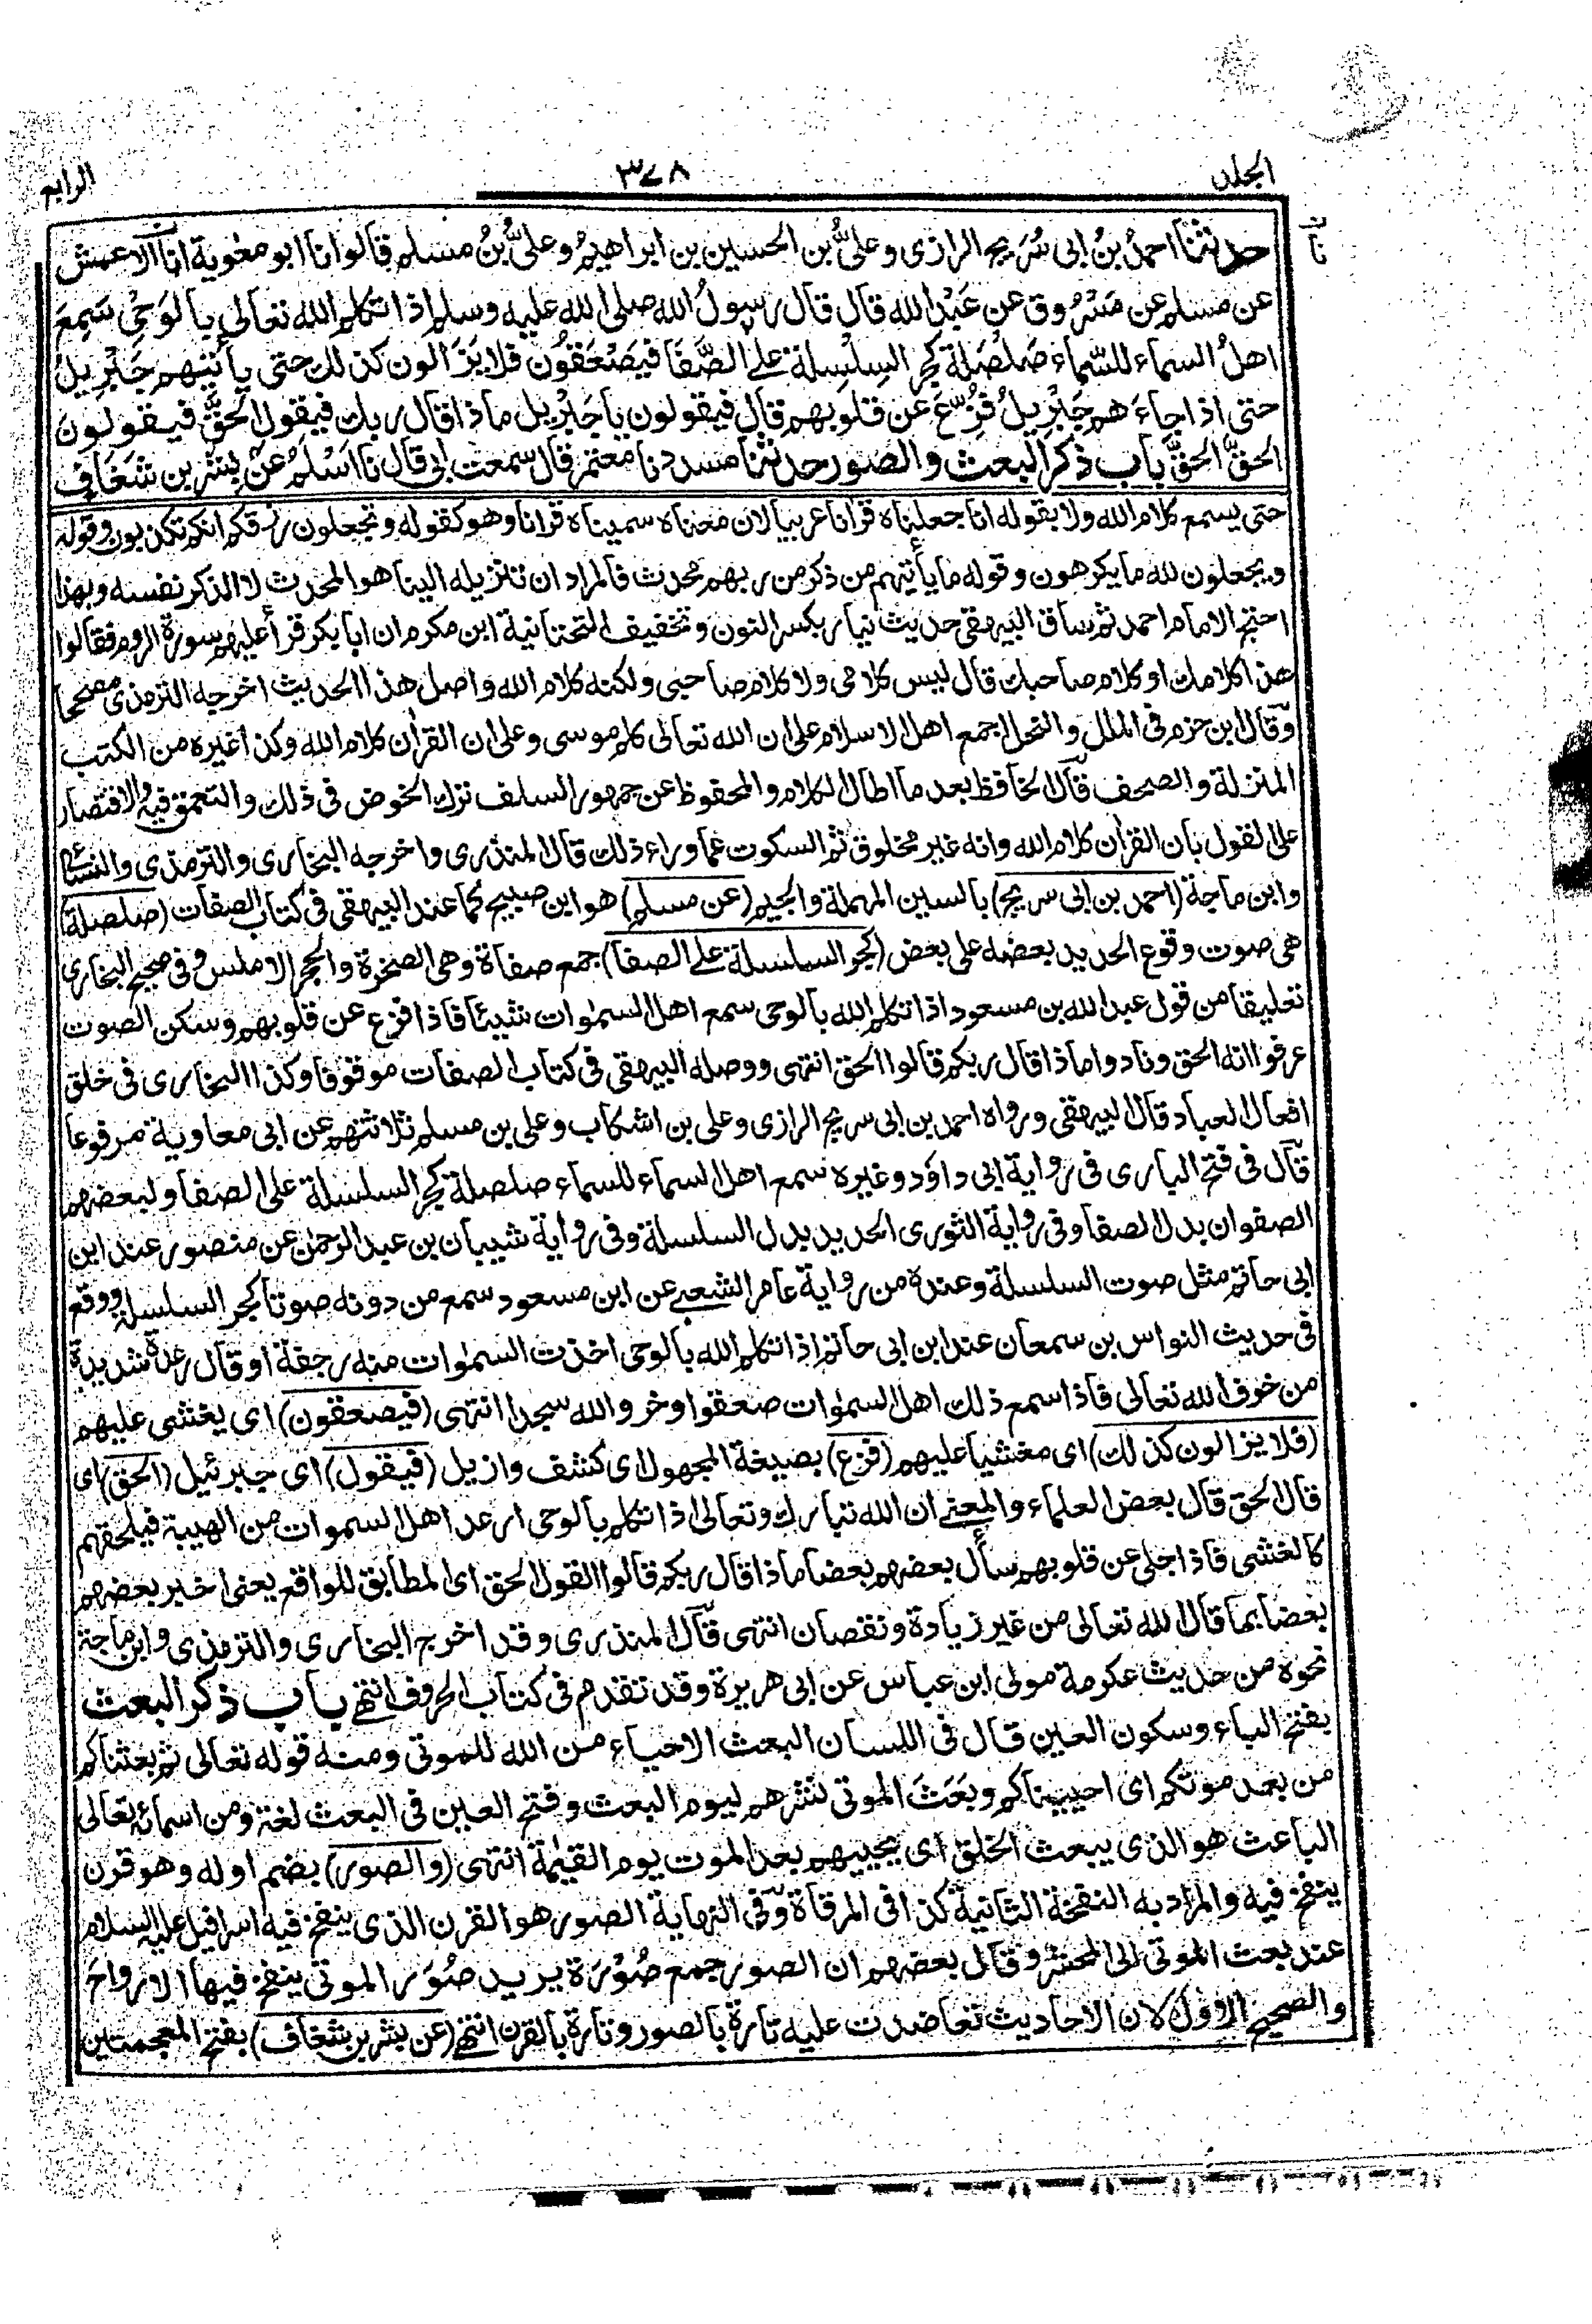 المجلد
٣٧٨
الرابع
نا
حدثنا احمدُ بنُ ابى سُرَيج الرازى وعلىُّ بن الحسين بن ابراهيمُ وعلىُّ بنُ مسلم قالوا نا ابو معٰوية انا الاعمش
عن مسلم عن مَسْرُوق عن عَبْدِ الله قال قال رسولُ الله صلى الله عليه وسلم اذا تكلم الله تعالى بالوَحْىِ سَمِعَ
اهلُ السماء للسّماء صَلْصَلَةً كجر السِلسِلة على الصَّفَا فيَصْعَقُون فلا يَزَالون كذلك حتى يأتيهم جَبْرِيلُ
حتى اذا جاءَهم جَبْرِيلُ فُزِّعَ عن قلوبهم قال فيقولون يا جَبْرِيل ماذا قال ربك فيقول الحقَّ فيقولون
الحقَّ الحقَّ باب ذكر البعث والصور حدثنا مسدد نا معتمر قال سمعت ابى قال نا اَسْلَمُ عن بِشْر بن شَغَافٍ
حتى يسمع كلام الله ولا بقوله انا جعلناه قرانا عربيا لان معناه سميناه قرانا وهو كقوله وتجعلون رزقكم انكم تكذبون وقوله
ويجعلون لله ما يكرهون وقوله ما يأتيهم من ذكر من ربهم محدث فالمراد ان تنزيله الينا هو المحدث لا الذكر نفسه وبهذا
احتج الامام احمد ثم ساق البيهقى حديث نيار بكسر النون وتخفيف التحتانية ابن مكرم ان ابا بكر قرأ عليهم سورة الروم فقالوا
هذا كلامك او كلام صاحبك قال ليس كلامى ولا كلام صاحبى ولكنه كلام الله واصل هذا الحديث اخرجه الترمذى مصححا
وقال ابن حزم فى الملل والنحل اجمع اهل الاسلام على ان الله تعالى كلم موسى وعلى ان القرآن كلام الله وكذا غيره من الكتب
المنزلة والصحف قال الحافظ بعد ما اطال الكلام والمحفوظ عن جمهور السلف ترك الخوض فى ذلك والتعمق فيه والاقتصار
على القول بان القرآن كلام الله وانه غير مخلوق ثم السكوت عما وراء ذلك قال المنذرى واخرجه البخارى والترمذى والنسائى
وابن ماجة (احمد بن ابى سريج) بالسين المهملة والجيم (عن مسلم) هو ابن صبيح كما عند البيهقى فى كتاب الصفات (صلصلة)
هى صوت وقوع الحديد بعضه على بعض (كجر السلسلة على الصفا) جمع صفاة وهى الصخرة والحجر الاملس وفى صحيح البخارى
تعليقا من قول عبد الله بن مسعود اذا تكلم الله بالوحى سمع اهل السمٰوات شيئا فاذا فزع عن قلوبهم وسكن الصوت
عرفوا انه الحق ونادوا ماذا قال ربكم قالوا الحق انتهى ووصله البيهقى فى كتاب الصفات موقوفا وكذا البخارى فى خلق
افعال العباد قال البيهقى ورواه احمد بن ابى سريج الرازى وعلى بن اشكاب وعلى بن مسلم ثلاثتهم عن ابى معاوية مرفوعا
قال فى فتح البارى فى رواية ابى داؤد وغيره سمع اهل السماء للسماء صلصلة كجر السلسلة على الصفا ولبعضهم
الصفوان بدل الصفا وفى رواية الثورى الحديد بدل السلسلة وفى رواية شيبان بن عبد الرحمٰن عن منصور عند ابن
ابى حاتم مثل صوت السلسلة وعنده من رواية عامر الشعبى عن ابن مسعود سمع من دونه صوتا كجر السلسلة ووقع
فى حديث النواس بن سمعان عند ابن ابى حاتم اذا تكلم الله بالوحى اخذت السمٰوات منه رجفة او قال رعدة شديدة
من خوف الله تعالى فاذا سمع ذلك اهل السمٰوات صعقوا وخروا لله سجدا انتهى (فيصعقون) اى يغشى عليهم
(فلا يزالون كذلك) اى مغشيا عليهم (فزع) بصيغة المجهول اى كشف وازيل (فيقول) اى جبرئيل (الحق) اى
قال الحق قال بعض العلماء والمعنى ان الله تبارك وتعالى اذا تكلم بالوحى ارعد اهل السموات من الهيبة فيلحقهم
كالغشى فاذا جلى عن قلوبهم سأل بعضهم بعضا ماذا قال ربكم قالوا القول الحق اى المطابق للواقع يعنى اخبر بعضهم
بعضا بما قال الله تعالى من غير زيادة ونقصان انتهى قال المنذرى وقد اخرج البخارى والترمذى وابن ماجة
نحوه من حديث عكرمة مولى ابن عباس عن ابى هريرة وقد تقدم فى كتاب الحروف انتهى باب ذكر البعث
بفتح الباء وسكون العين قال فى اللسان البعث الاحياء من الله للموتى ومنه قوله تعالى ثم بعثناكم
من بعد موتكم اى احييناكم وبَعَثَ الموتى نشرهم ليوم البعث وفتح العين فى البعث لغة ومن اسمائه تعالى
الباعث هو الذى يبعث الخلق اى يحييهم بعد الموت يوم القيٰمة انتهى (والصور) بضم اوله وهو قرن
ينفخ فيه والمراد به النفخة الثانية كذا فى المرقاة وفى النهاية الصور هو القرن الذى ينفخ فيه اسرافيل عليه السلام
عند بعث الموتى الى المحشر وقال بعضهم ان الصور جمع صُوْرَة يريد صُوَر الموتى ينفخ فيها الارواحَ
والصحيح الاول لان الاحاديث تعاضدت عليه تارة بالصور وتارة بالقرن انتهى (عن بشر بن شغاف) بفتح المعجمتين